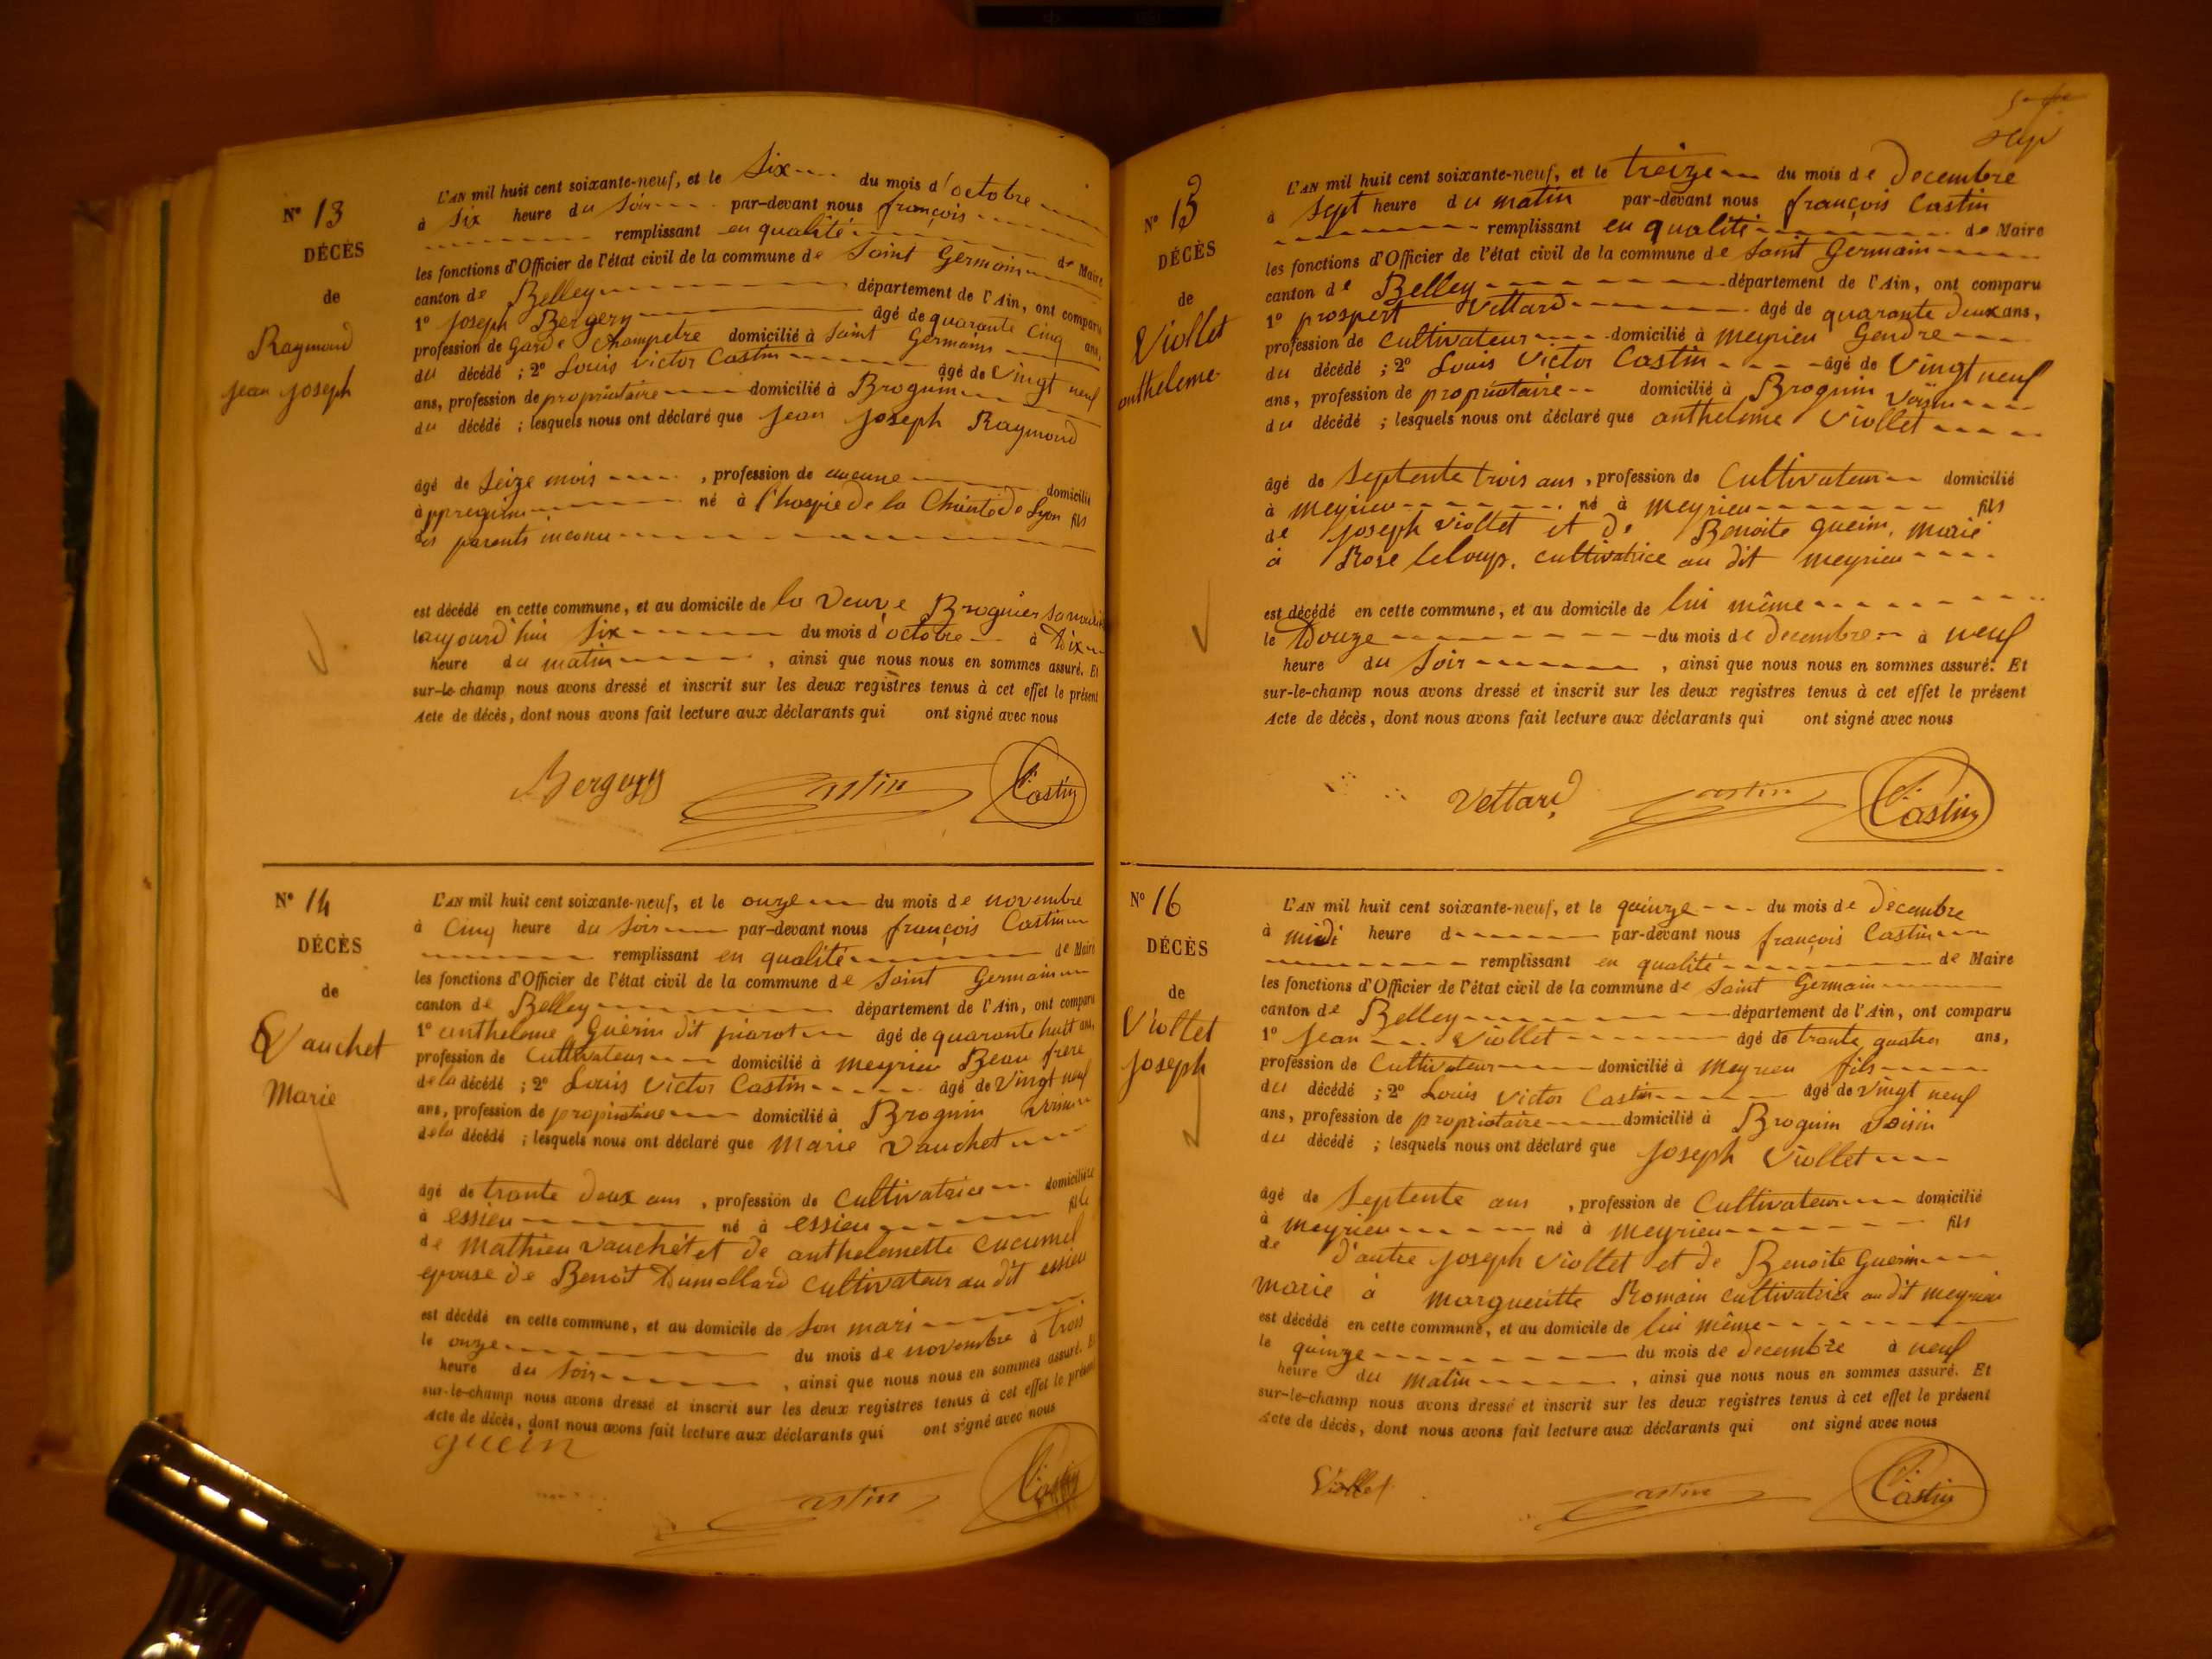 N° 13
DÉCÈS
de
Raymond
jean joseph
L'AN mil huit cent soixante-neuf, et le Six du mois d'octobre
à Six heure du Soir par-devant nous françois
remplissant en qualité de Maire
les fonctions d'Officier de l'état civil de la commune de Saint Germain
canton de Belley département de l'Ain, ont comparu
1° Joseph Bergery âgé de quarante Cinq ans,
profession de Garde Champetre domicilié à Saint Germain
du décédé ; 2° Louis Victor Castin âgé de Vingt neuf
ans, profession de propriétaire domicilié à Brognin
du décédé ; lesquels nous ont déclaré que jean joseph Raymond
âgé de Seize mois , profession de aucune domicilié
à né à l'hospice de la Charité de Lyon fils
des parents inconu
est décédé en cette commune, et au domicile de la Veuve Brognier
le aujourd'hui Six du mois d'octobre à Dix
heure du matin , ainsi que nous nous en sommes assuré. Et
sur-le-champ nous avons dressé et inscrit sur les deux registres tenus à cet effet le présent
Acte de décès, dont nous avons fait lecture aux déclarants qui ont signé avec nous
Bergery Castin Castin
N° 14
DÉCÈS
de
Vauchet
Marie
L'AN mil huit cent soixante-neuf, et le onze du mois de novembre
à Cinq heure du Soir par-devant nous françois Castin
remplissant en qualité de Maire
les fonctions d'Officier de l'état civil de la commune de Saint Germain
canton de Belley département de l'Ain, ont comparu
1° anthelme Guérin dit piarot âgé de quarante huit ans,
profession de Cultivateur domicilié à meyrieu Beau frere
de la décédé ; 2° Louis Victor Castin âgé de Vingt neuf
ans, profession de propriétaire domicilié à Brognin voisin
de la décédé ; lesquels nous ont déclaré que Marie Vauchet
âgé de trante deux ans , profession de Cultivatrice domiciliée
à essieu né à essieu fille
de Mathieu Vauchet et de anthelmette cucumel
epouse de Benoit Dumollard Cultivateur au dit essieu
est décédé en cette commune, et au domicile de Son mari
le onze du mois de novembre à trois
heure du Soir , ainsi que nous nous en sommes assuré. Et
sur-le-champ nous avons dressé et inscrit sur les deux registres tenus à cet effet le présent
Acte de décès, dont nous avons fait lecture aux déclarants qui ont signé avec nous
guein
Castin Castin
N° 13
DÉCÈS
de
Viollet
antheleme
L'AN mil huit cent soixante-neuf, et le treize du mois de Decembre
à Sept heure du matin par-devant nous françois Castin
remplissant en qualité de Maire
les fonctions d'Officier de l'état civil de la commune de Saint Germain
canton de Belley département de l'Ain, ont comparu
1° prospert Vettard âgé de quarante Deux ans,
profession de Cultivateur domicilié à meyrieu Gendre
du décédé ; 2° Louis Victor Castin âgé de Vingt neuf
ans, profession de propriétaire domicilié à Brognin Voisin
du décédé ; lesquels nous ont déclaré que anthelme Viollet
âgé de Septente trois ans , profession de Cultivateur domicilié
à meyrieu né à meyrieu fils
de joseph Viollet et de Benoite guerin, marié
à Rose leloup, cultivatrice au dit meyrieu
est décédé en cette commune, et au domicile de lui même
le Douze du mois de Decembre à neuf
heure du Soir , ainsi que nous nous en sommes assuré. Et
sur-le-champ nous avons dressé et inscrit sur les deux registres tenus à cet effet le présent
Acte de décès, dont nous avons fait lecture aux déclarants qui ont signé avec nous
Vettard Castin Castin
N° 16
DÉCÈS
de
Viollet
joseph
L'AN mil huit cent soixante-neuf, et le quinze du mois de Décembre
à midi heure d par-devant nous françois Castin
remplissant en qualité de Maire
les fonctions d'Officier de l'état civil de la commune de Saint Germain
canton de Belley département de l'Ain, ont comparu
1° Jean Viollet âgé de trante quatre ans,
profession de Cultivateur domicilié à meyrieu fils
du décédé ; 2° Louis Victor Castin âgé de Vingt neuf
ans, profession de propriétaire domicilié à Brognin Voisin
du décédé ; lesquels nous ont déclaré que joseph Viollet
âgé de Septente ans , profession de Cultivateur domicilié
à meyrieu né à meyrieu fils
de d'autre joseph Viollet et de Benoite Guerin
marié à margueritte Romain cultivatrice au dit meyrieu
est décédé en cette commune, et au domicile de lui même
le quinze du mois de Decembre à neuf
heure du matin , ainsi que nous nous en sommes assuré. Et
sur-le-champ nous avons dressé et inscrit sur les deux registres tenus à cet effet le présent
Acte de décès, dont nous avons fait lecture aux déclarants qui ont signé avec nous
Viollet Castin Castin